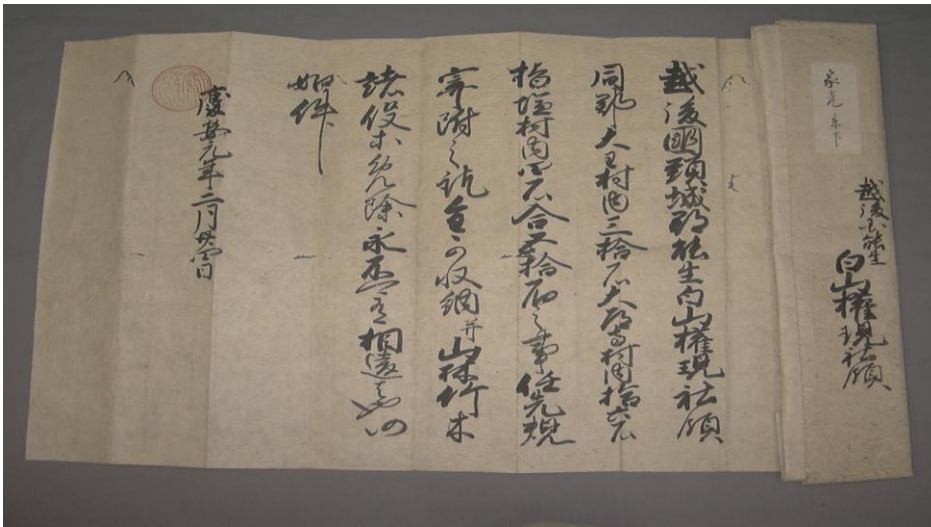 家光
越後国能生
白山權現社領
越後國頸城郡能生白山權現社領
同郡大王村内三拾石大村内拾六石
指塩村内四石合五拾石之事任先規
寄附之訖全可収納并山林竹木
諸役等免除永不可有相違者也仍
如件
慶安元年二月廿四日